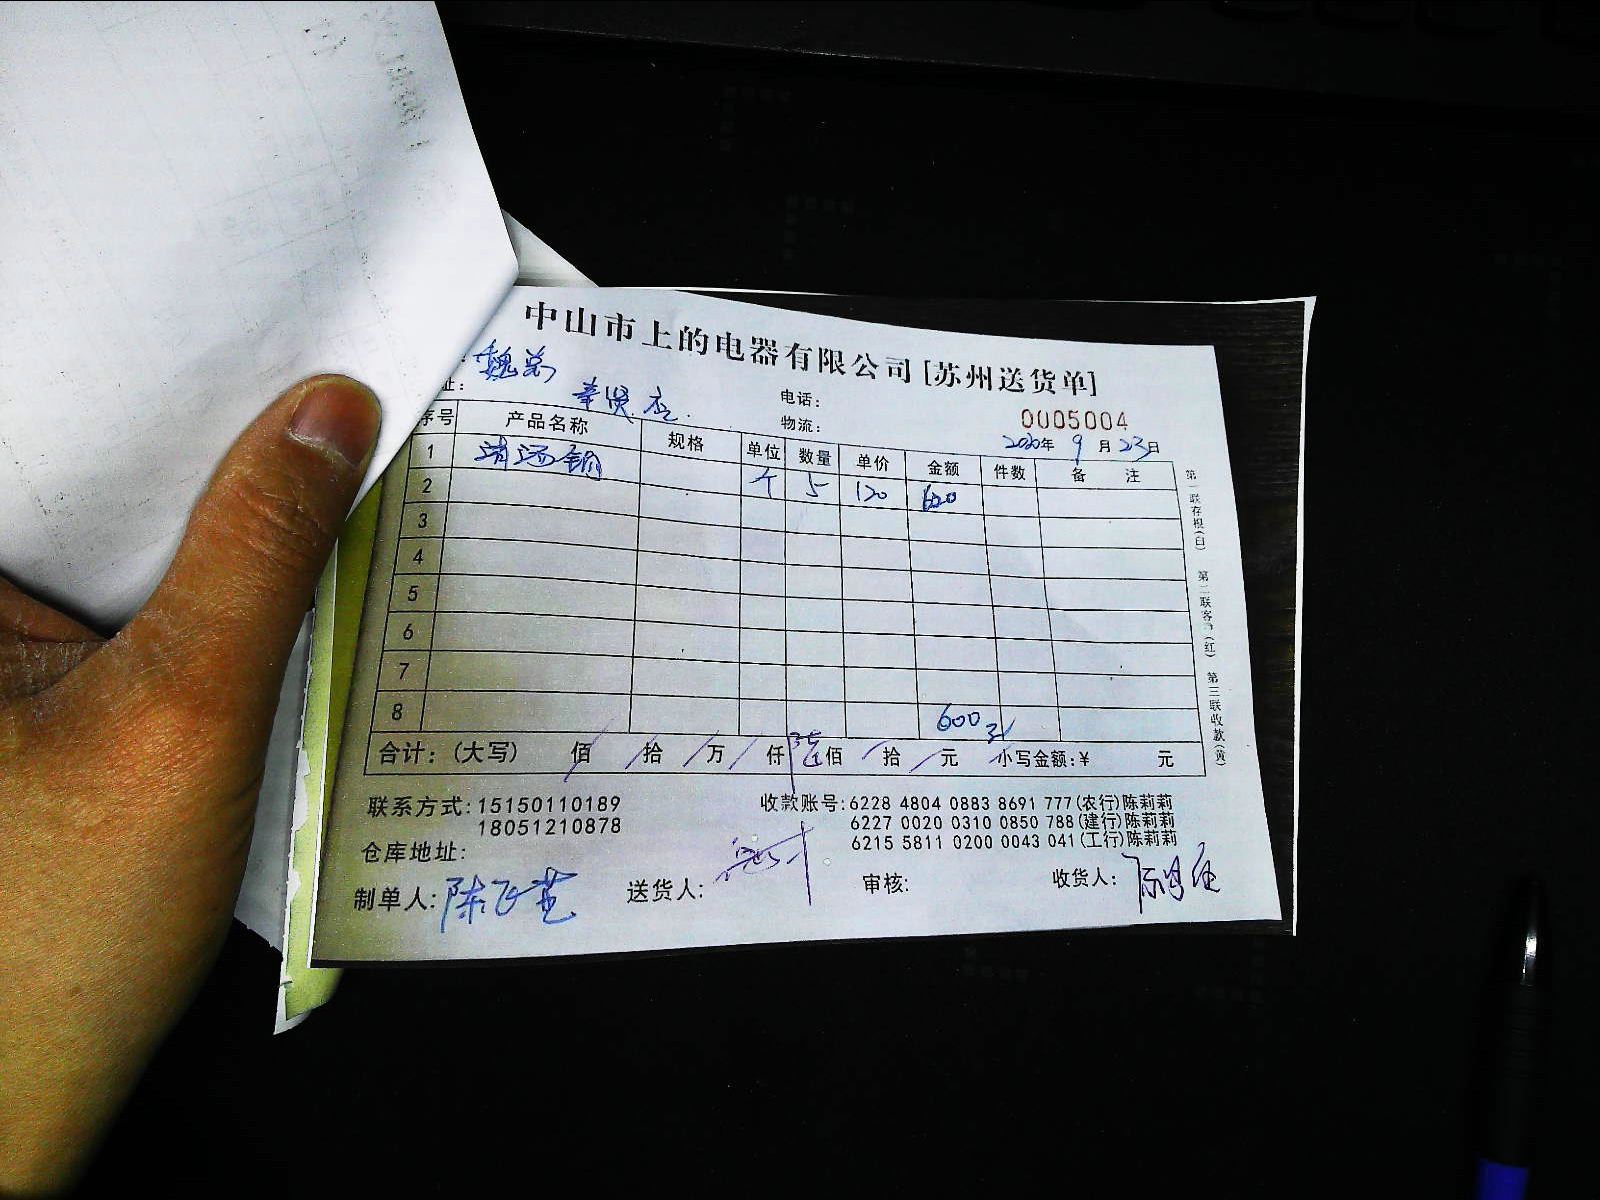 中山市上的电器有限公司[苏州送货单]
魏总
址: 奉贤店. 电话:
物流: 0005004
2020年 9 月 23日
序号 产品名称 规格 单位 数量 单价 金额 件数 备 注
1 个 5 120 600
2
3
4
5
6
7
8 600
合计: (大写) 佰 / 拾 / 万 / 仟 陆 佰 / 拾 / 元 小写金额:¥ 元
联系方式: 15150110189 收款账号:6228 4804 0883 8691 777(农行)陈莉莉
18051210878 6227 0020 0310 0850 788(建行)陈莉莉
仓库地址: 6215 5811 0200 0043 041(工行)陈莉莉
制单人: 送货人: 审核: 收货人:
第一联存根(白) 第二联客户(红) 第三联收款(黄)